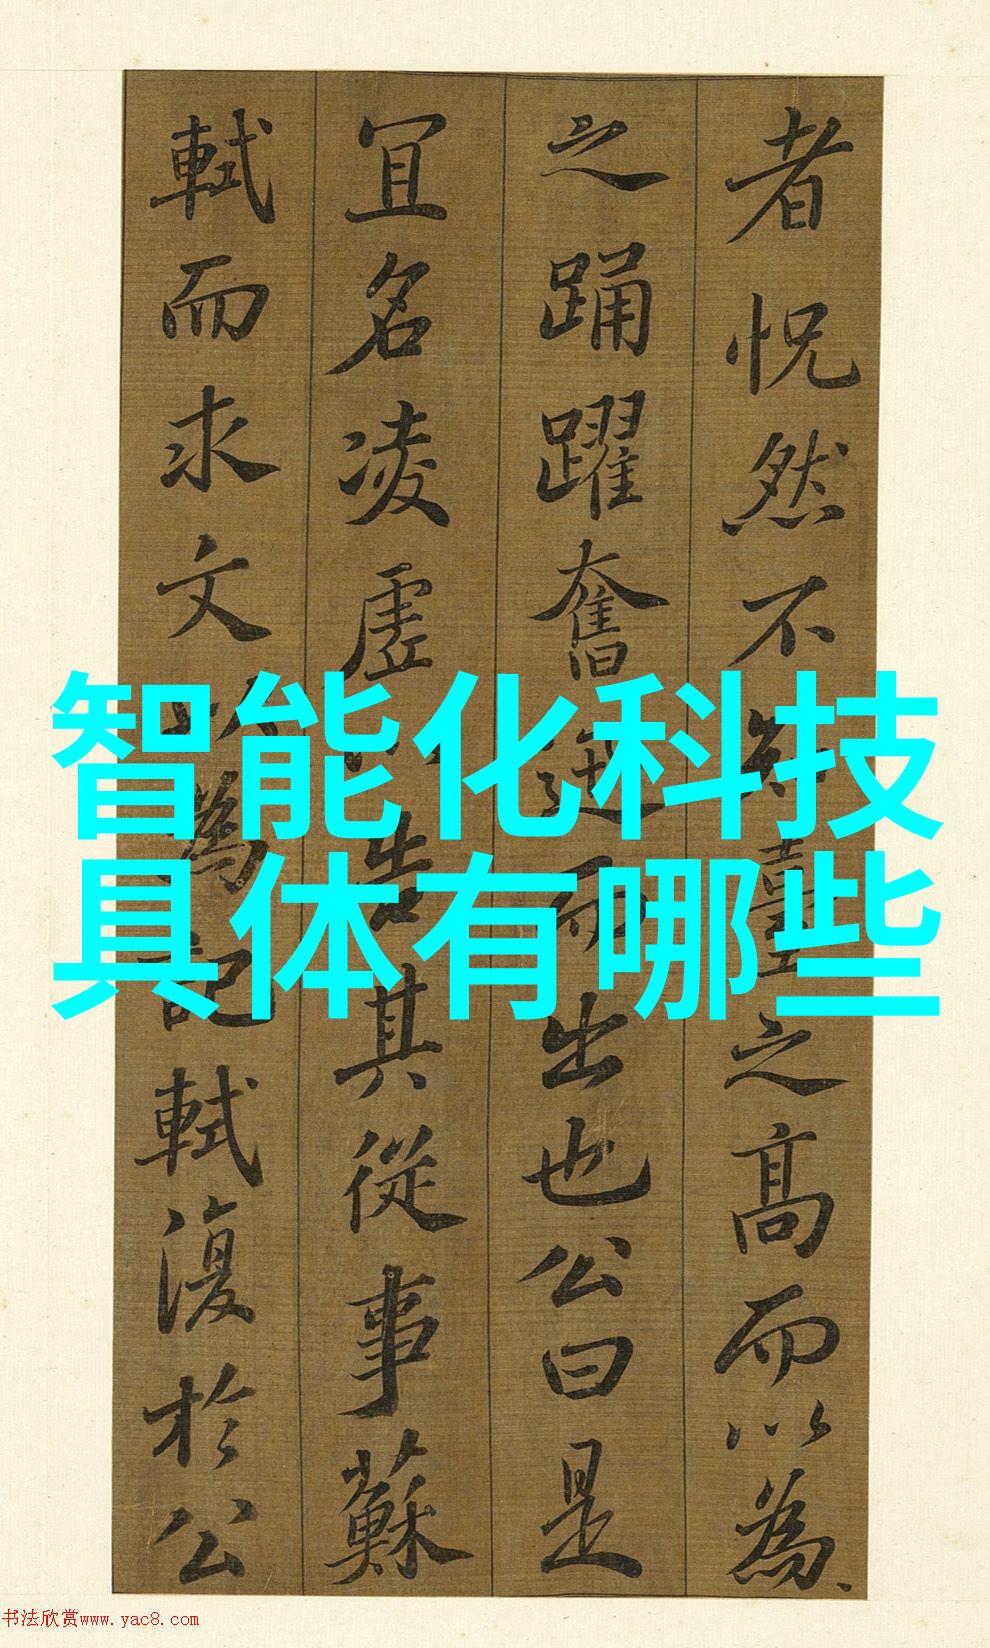 者怳然不知臺之高而以為
之踊躍奮迅而出也公曰是
宜名凌虛以告其從事蘇
軾而求文以為記軾復於公
智能化科技
具体有哪些
书法欣赏www.yac8.com